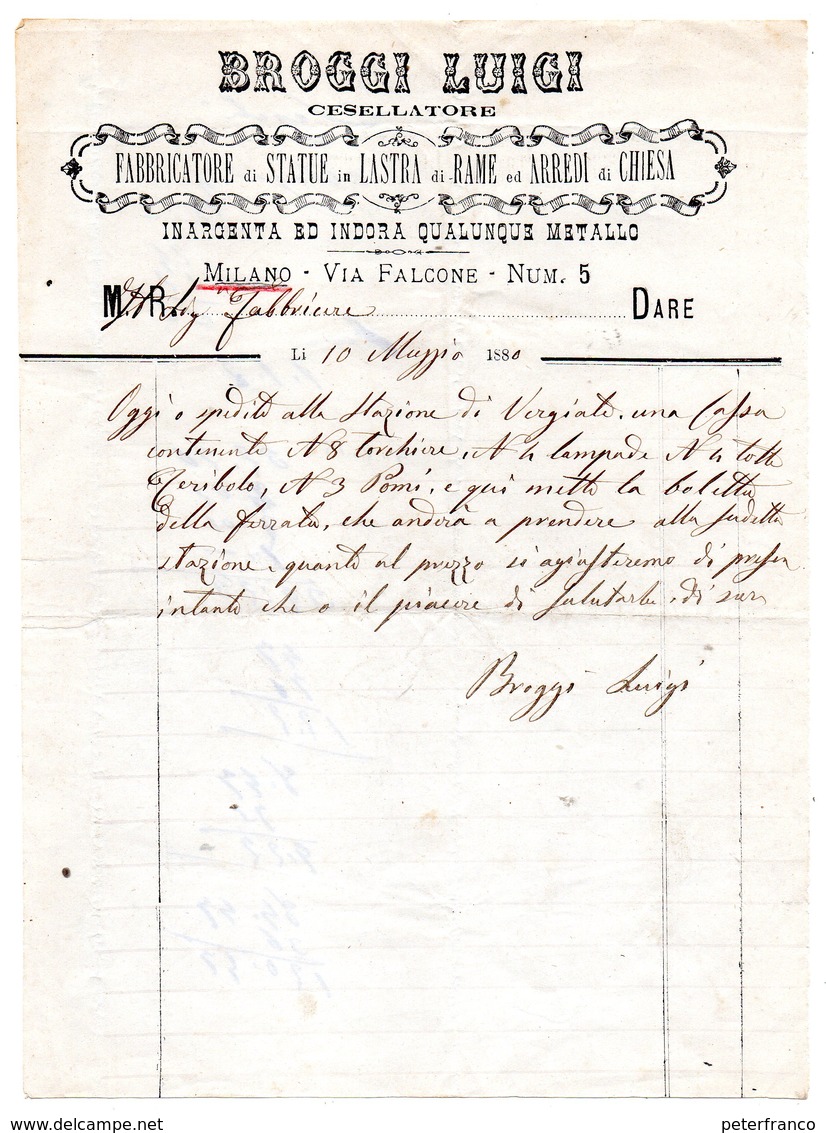 BROGGI LUIGI
CESELLATORE
FABBRICATORE di STATUE in LASTRA di RAME ed ARREDI di CHIESA
INARGENTA ED INDORA QUALUNQUE METALLO
MILANO - VIA FALCONE - NUM. 5
M. R. Sig Fabbriciere DARE
Li 10 Maggio 1880
Oggi o spedito alla Stazione di Vergiate, una Cassa
contenente N 8 torchiere, N 4 lampade N 4 totte
Teribolo, N 3 Pomi, e qui metto la boletta
della ferrata, che anderà a prendere alla sudetta
stazione, quanto al prezzo si agiusteremo di presen
intanto che o il piacere di salutarla, di
Broggi Luigi
delcampe.net
peterfranco